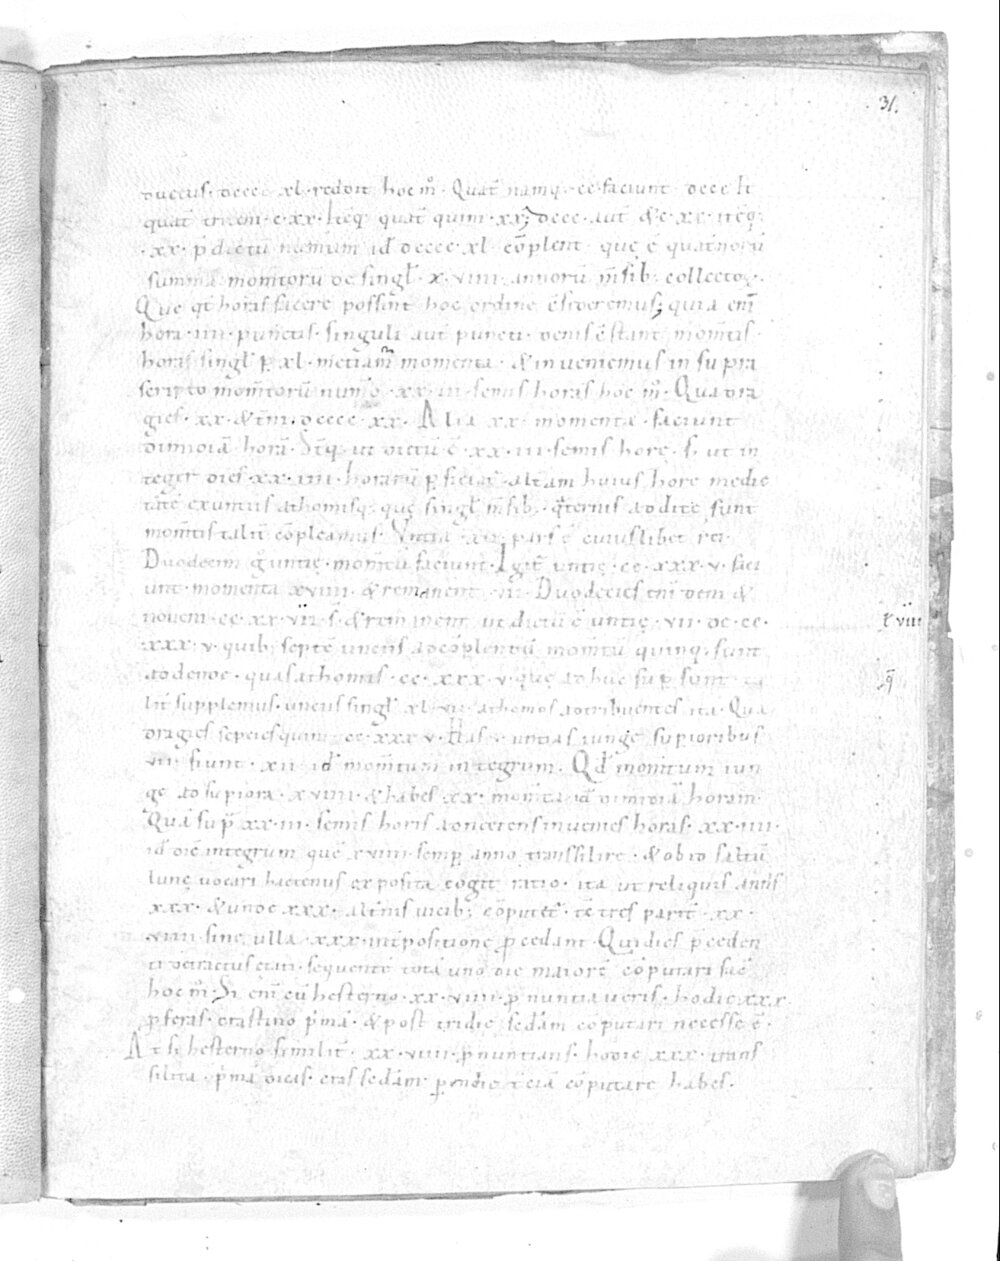 31.
ductus · dcccc xl · reddit hoc m̄ · Quat̄ namq; · cc faciunt dccc Et
quat̄ triceni · c · xx · Iteq; quat̄ quini · xx; dccc · aut̄ & c · xx · iteq;
· xx · p̄dictū numerum id̄ dcccc · xl cōplent · quę ē quat̄norū
summa momtorū de singl̄ · x · viiii · annorū m̄sib; collecto
Que qt̄ horas facere possint hoc ordine c̄sideremus; quia enī
hora · iiii · punctis · singuli aut̄ puncti · denis c̄stant mom̄tis ·
horas singl̄ p xl · metiam̄ momenta · & inveniemus in supra
scripto mom̄torū num̄o · xx · iii · semis horas hoc m̄ · Quadra
gies · xx · & t̄ni · dcccc · xx · Alia xx · momenta · faciunt
dimidiā horā · Itaq; ut dictū ē · xx · iii · semis horę · s; ut in
teger dies · xx · iiii · horarū p̄ficiat̄ · alt̄am huius horę medie
tatē ex untiis athomisq; quę singl̄ m̄sib; q̄ternis addite sunt
mom̄tis talit̄ cōpleamus · Untia xii · pars ē cuiuslibet rei ·
Duodecim g̊ untię · momtū faciunt · Igit̄ untię · cc · xxx · v · faci
unt · momenta xviiii · & remanent · vii · Duodecies enī deni &
noveni · cc · xx · vii · s · & remanent ut dictū ē untię · vii · de · cc ·
xxx · v · quib; septē unciis ad cōplendū mom̄tū quinq; sunt
addende · quas athomis · cc · xxx · v · quę adhuc sup̄sunt
lit̄ supplemus · unciis singl̄ xl · vii · athomos adtribuentes ita · Qua
dragies sepcies quini · cc · xxx · v · Has · v · untias iunge sup̄ioribus
vii · fiunt · xii · id̄ mom̄tum integrum · Qd̄ momtum iun
ge ad sup̄iora · xviiii · & habes xx · mom̄ta id̄ dimidiā horam ·
Quā sup̄ xx · iii · semis horis adnectens invenies horas · xx · iiii ·
id̄ diē integrum quē xviiii · semp̄ anno transsilire · & ob id saltū
lunę vocari hactenus exposita cogit ratio · ita ut reliquis annis
xxx · & undc xxx · alt̄nis vicib; cōputet̄ · tē tres parit̄ · xx ·
viiii · sine ulla · xxx · int̄positione p̄cedant · Qui dies p̄ceden
ti detractus etati · sequentē totā uno die maiorē cōputari faē
hoc m̄ · Si enī eū hesterno · xx · viiii · p̄nuntiaveris · hodie xxx ·
p̄feras · crastino p̄ma · & post tridie sedam cōputari necesse ē ·
At si hesterno similit̄ · xx · viiii · p̄nuntians · hodie xxx · trans
silita · p̄ma dicas · cras sedam · p̄endie t̄ciā cōputare habes ·